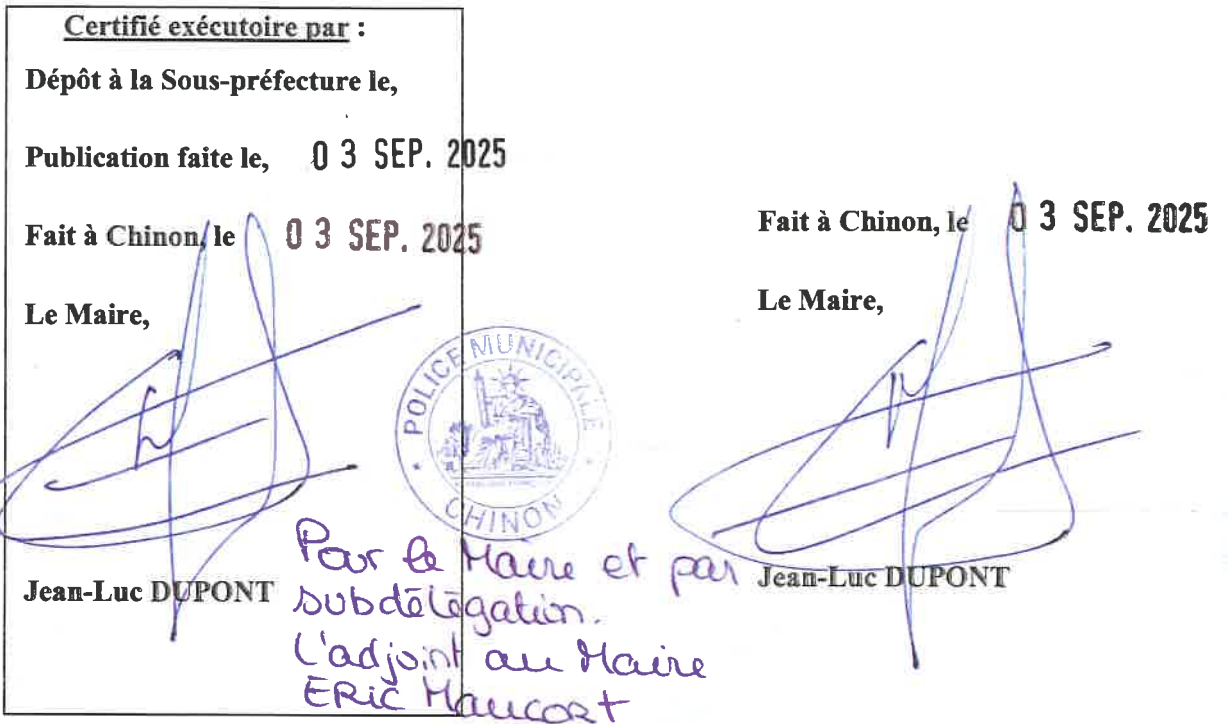 Certifié exécutoire par :
Dépôt à la Sous-préfecture le,
Publication faite le, 03 SEP. 2025
Fait à Chinon, le 03 SEP. 2025
Le Maire,
Jean-Luc DUPONT
POLICE MUNICIPALE
CHINON
Pour le Maire et par
subdélégation.
L'adjoint au Maire
ERIC Maucort
Fait à Chinon, le 03 SEP. 2025
Le Maire,
Jean-Luc DUPONT